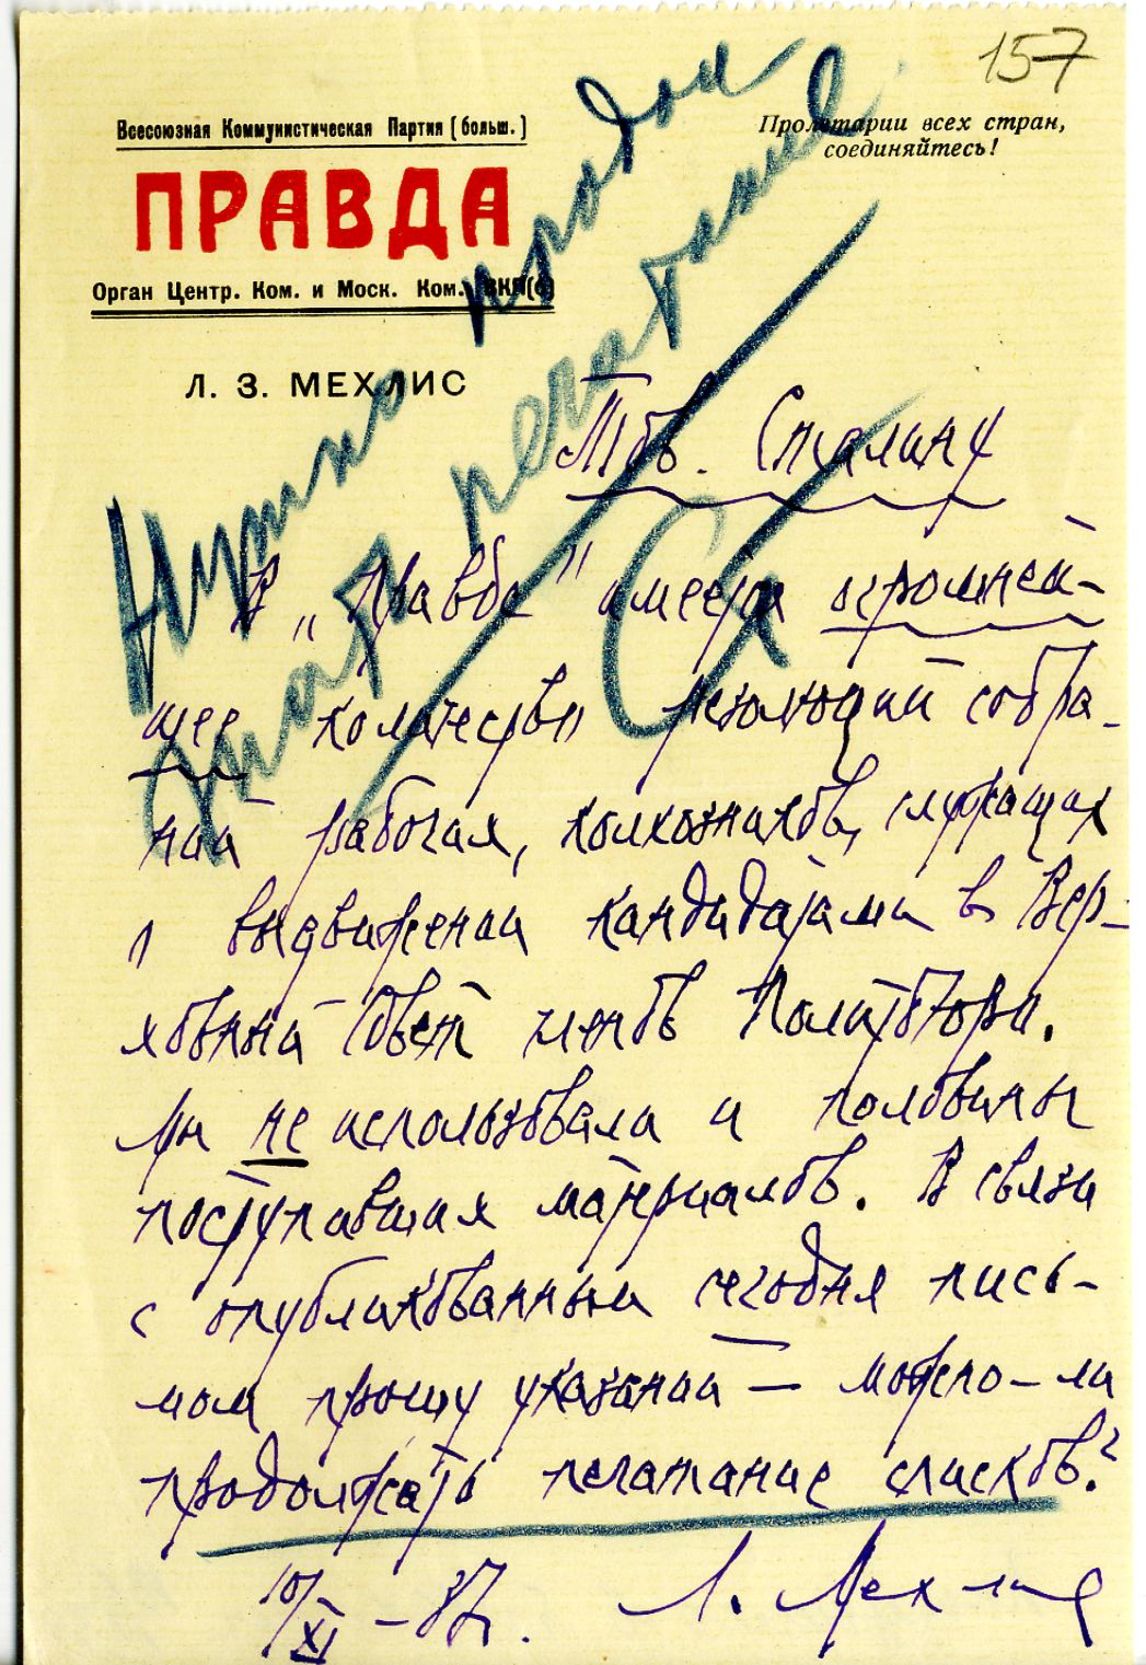 157
Всесоюзная Коммунистическая Партия (больш.)
Пролетарии всех стран,
соединяйтесь!
ПРАВДА
Орган Центр. Ком. и Моск. Ком. ВКП(б)
Л. З. МЕХЛИС
Нужно продол
жать печатание
Ст
Тов. Сталину
В „Правде" имеется огромней-
шее количество резолюций собра-
ний рабочих, колхозников, служащих
о выдвижении кандидатами в Вер-
ховный Совет членов Политбюро.
Мы не использовали и половины
поступивших материалов. В связи
с опубликованным сегодня пись-
мом прошу указаний — можно-ли
продолжать печатание списков?
10/XI – 37. Л. Мехлис